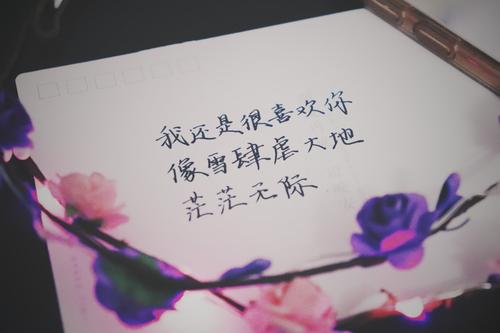 我还是很喜欢你
像雪肆虐大地
茫茫无际